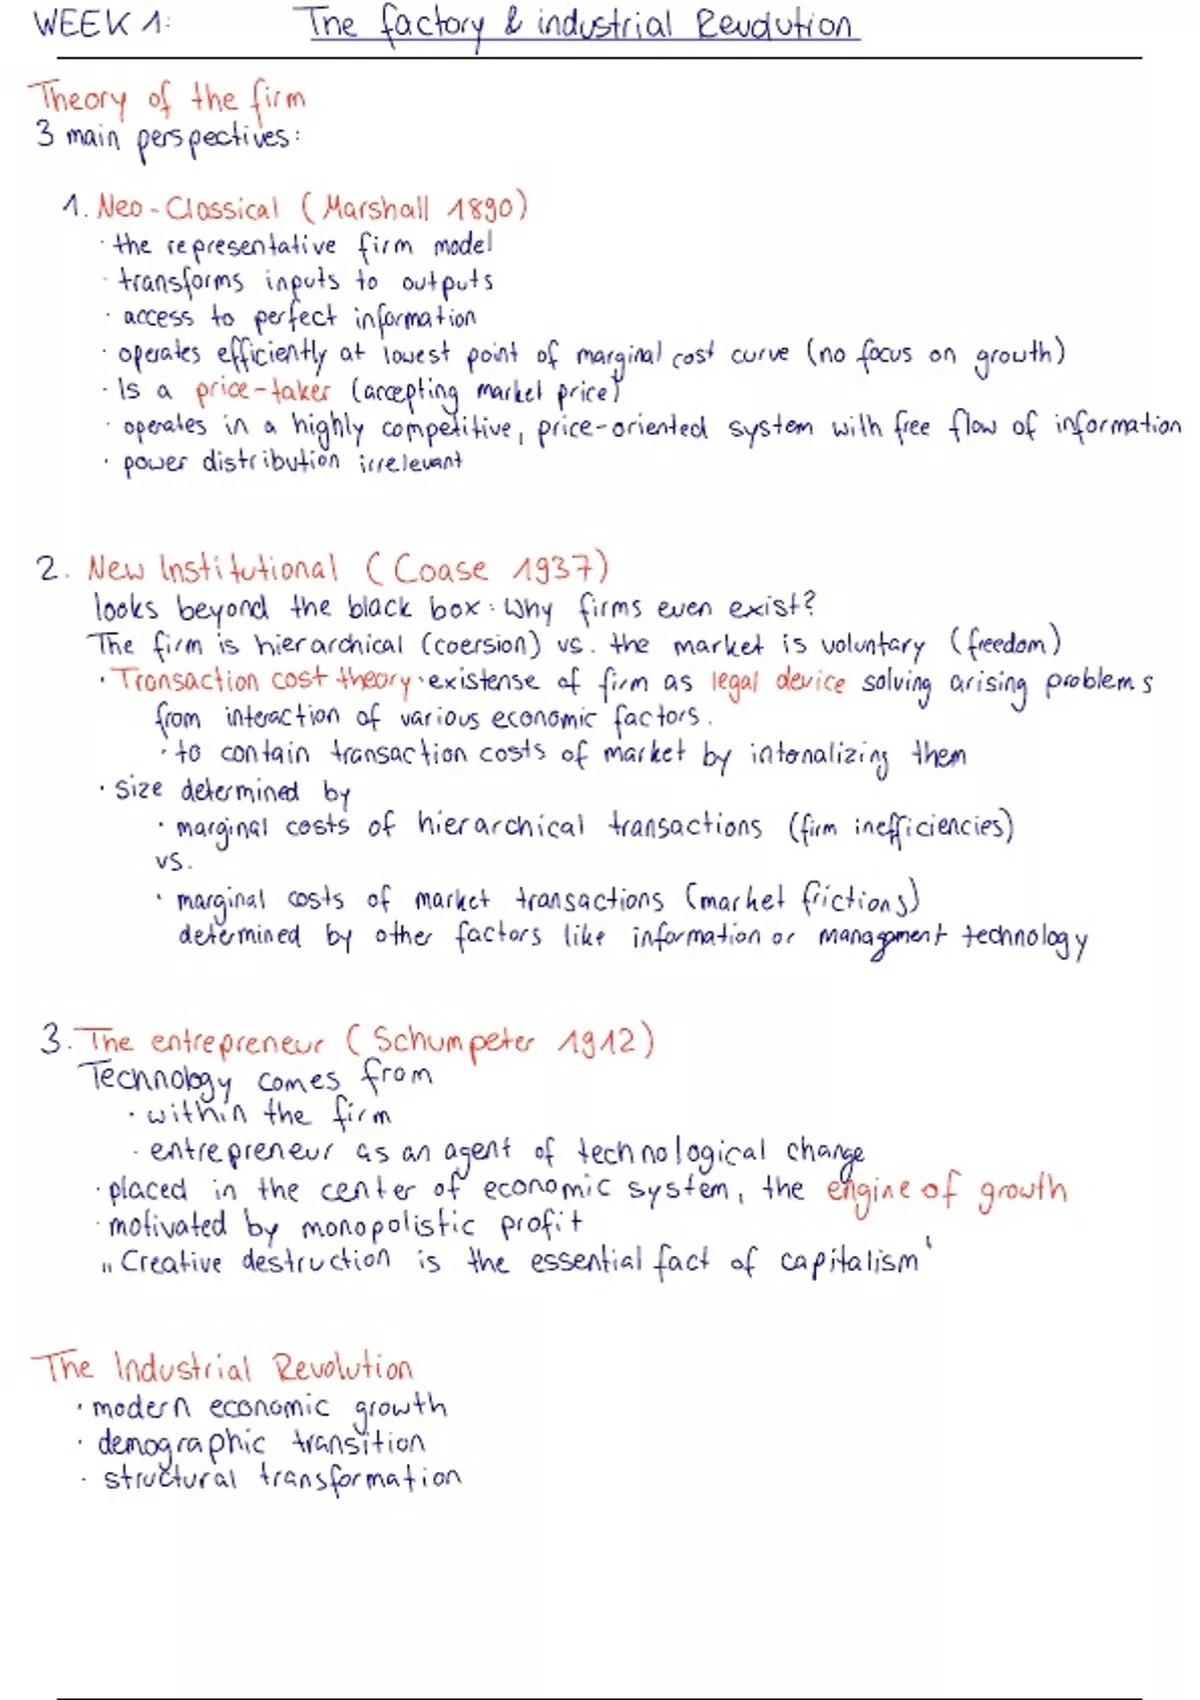 WEEK 1: The factory & industrial Revolution
Theory of the firm
3 main perspectives:
1. Neo-Classical (Marshall 1890)
· the representative firm model
· transforms inputs to outputs
· access to perfect information
· operates efficiently at lowest point of marginal cost curve (no focus on growth)
· Is a price-taker (accepting market price)
· operates in a highly competitive, price-oriented system with free flow of information
· power distribution irrelevant
2. New Institutional (Coase 1937)
looks beyond the black box: Why firms even exist?
The firm is hierarchical (coersion) vs. the market is voluntary (freedom)
· Transaction cost theory · existense of firm as legal device solving arising problems
from interaction of various economic factors.
· to contain transaction costs of market by intonalizing them
· size determined by
· marginal costs of hierarchical transactions (firm inefficiencies)
vs.
· marginal costs of market transactions (market frictions)
determined by other factors like information or managment technology
3. The entrepreneur (Schumpeter 1912)
Technology comes from
· within the firm
· entrepreneur as an agent of technological change
· placed in the center of economic system, the engine of growth
· motivated by monopolistic profit
„Creative destruction is the essential fact of capitalism‘
The Industrial Revolution
· modern economic growth
· demographic transition
· structural transformation